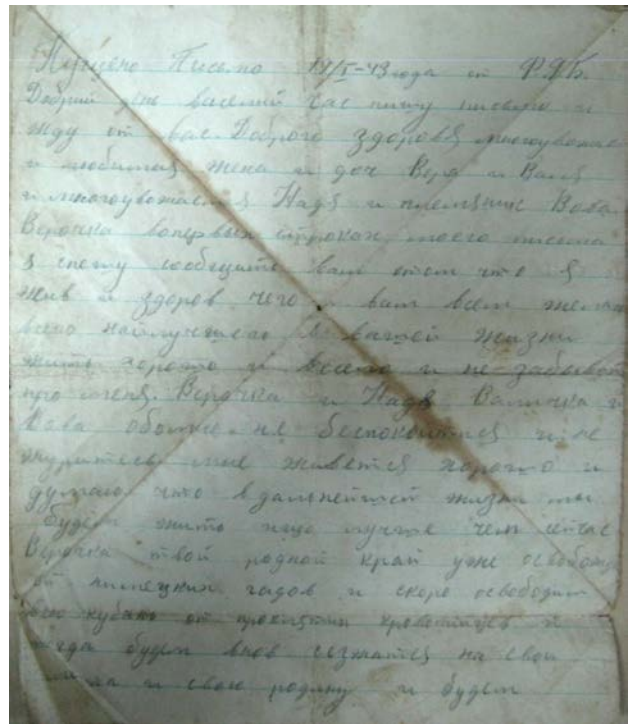 Пущено Письмо 19/I-43 года от Ф.Я.Б.
Добрий день васелий час пишу письмо и
жду от вас Доброго здоровя многоуважаем
и любимая жена и доч Вера и Валя
и многоуважаемая Надя и племяник Вова
Верочка вопервых строках моего письма
я спешу сообщить вам отом что я
жив и здоров чего и вам всем желаю
всего найлучшего в вашей жизни
жить хорошо и весело и не забывай
про меня. Верочка и Надя Валичка и
Вова обомне не беспокойтися и не
журитесь мне живется хорошо и
думаю что вдальнейшей жизни мы
будем жить ище лучше чем сейчас
Верочка твой родной край уже освобожд
от нимецких гадов и скоро освободим
всю кубань от проклятих кровопийцев и
тогда будем внов сезжатся на свои
и свою родину и будем